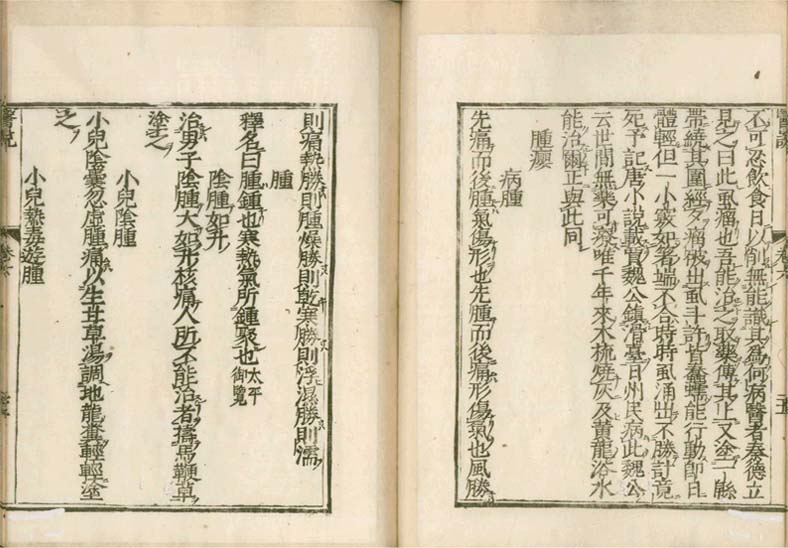 不可忍飲食日以削無能識其為何病醫者秦德立
見之曰此虱瘤也吾能治之取藥傅其上又塗一綿
帶繞其圍經夕瘤破出虱斗許皆蠢蠕能行動即日
體輕但一小竅如箸端不合時時虱涌出不勝計竟
死予記唐小說載賈魏公鎮滑臺日州民病此魏公
云世間無藥可療唯千年來木梳燒灰及黃龍浴水
能治爾正與此同
腫瘿
病腫
先痛而後腫氣傷形也先腫而後痛形傷氣也風勝
則痛熱勝則腫燥勝則乾寒勝則浮濕勝則濡
腫
釋名曰腫鍾也寒熱氣所鍾聚也太平御覽
陰腫如升
治男子陰腫大如升核痛人所不能治者擣馬鞭草
塗之
小兒陰腫
小兒陰囊忽虛腫痛以生甘草湯調地龍糞輕輕塗
之
小兒熱毒遊腫
醫說